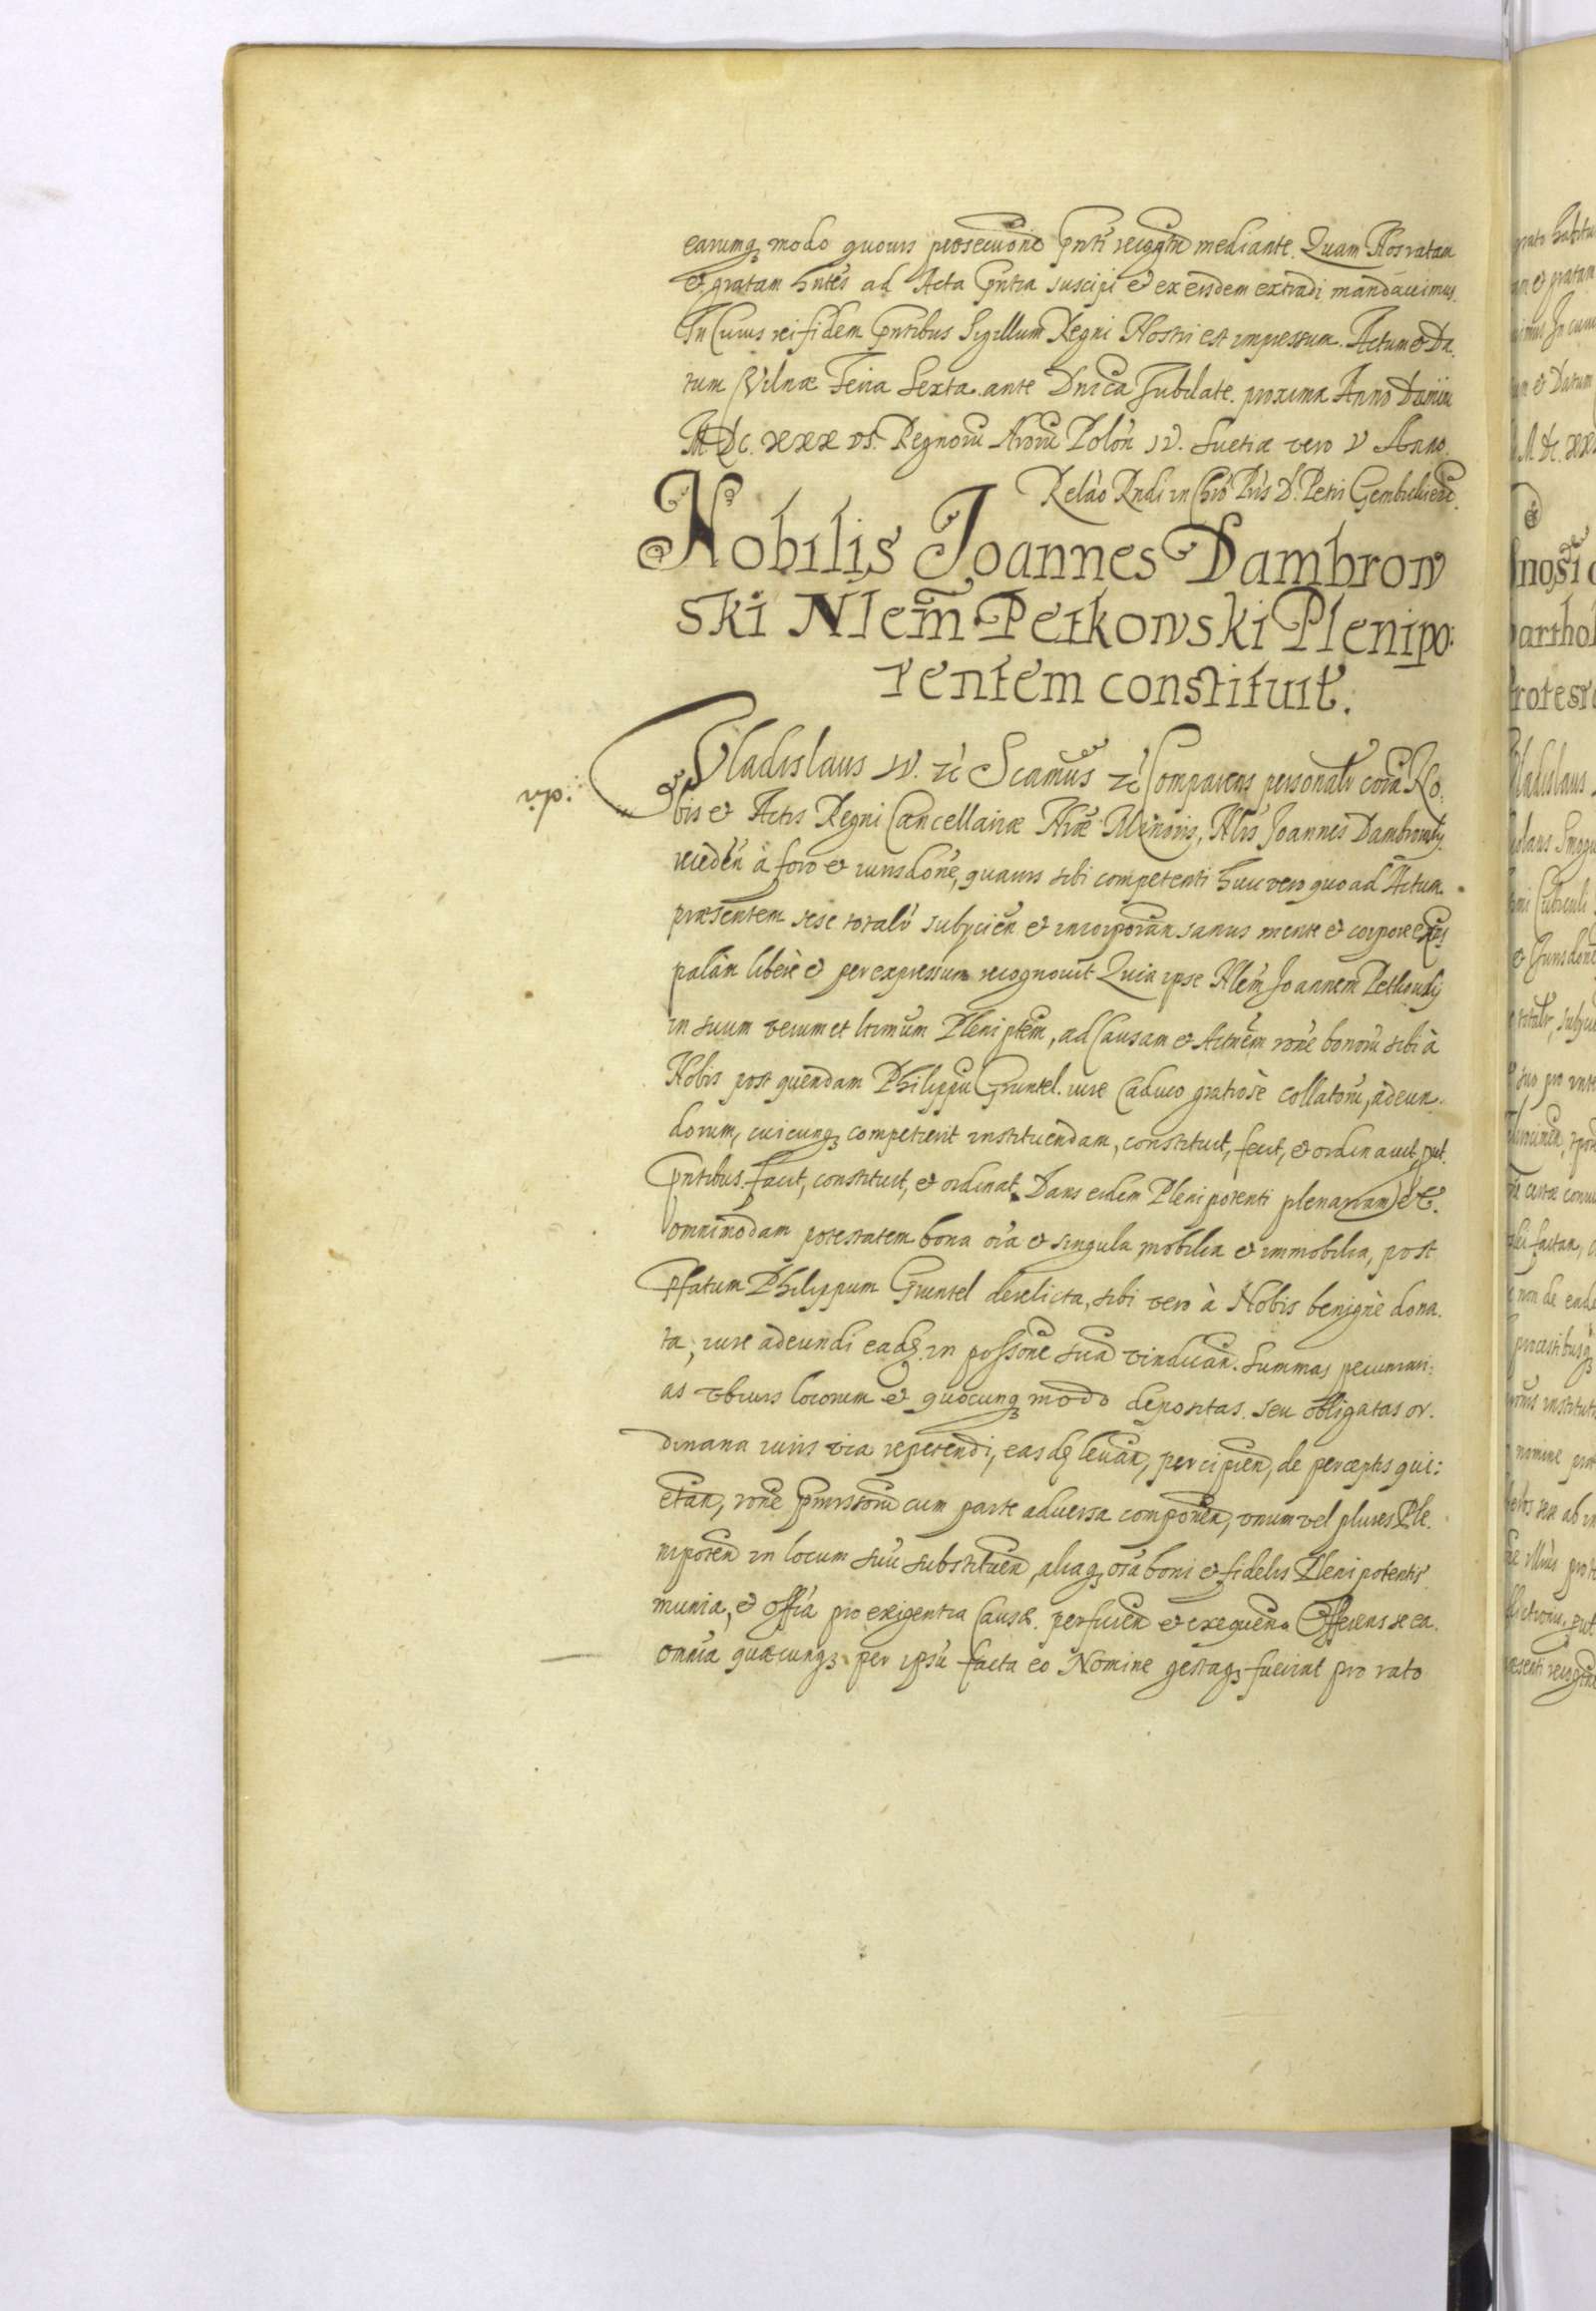 earumq₃ modo quovis prosecutione pnti recogne mediante. Quam Nos ratam
et gratam hntes ad Acta pntia suscipi et ex eisdem extradi mandavimus.
In Cuius rei fidem pntibus Sigillum Regni Nostri est impressum. Actum et Da
tum Vilnæ Feria Sexta ante Dnica Jubilate proxima Anno Domini
M DC. XXX VI. Regnoru Nroru Polon IV. Suetiæ vero V Anno.
Relao Rndi in Chro Pris D. Petri Gembicki etc.
Nobilis Joannes Dambrow
ski Nlem Petkowski Plenipo:
tentem constituit.
vp:
Vladislaus IV. etc Scamus etc Comparens personalr cora No,
bis et Actis Regni Cancellariæ Nræ Minoris, Nlis Joannes Dambrowsky
recedēn à foro et iurisdone, quavis sibi competenti huic vero quo ad Actum
præsentem sese totalr subycien et incorporan sanus mente et corpore exns
palàm liberè et per expressum recognovit Quia ipse Nlem Joannem Petkowsky
in suum verum et ltimum Pleniptem, ad Causam et Actnem rone bonoru sibi à
Nobis post quendam Philippu Gruntel. iure Caduco gratiosè collatoru, adeun
dorum, cuicunq₃ competierit instituendam, constituit, fecit, et ordinavit, put
pntibus facit, constituit, et ordinat. Dans eidem Plenipotenti plenariam et
omnimodam potestatem bona oia et singula mobilia et immobilia, post
pfatum Philippum Gruntel derelicta, sibi vero à Nobis benignè dona
ta, iure adeundi eadq₃ in possone sua vindican. Summas pecuniari:
as ubivis locorum et quocunq₃ modo depositas seu obligatas or.
dinaria iuris via repetendi, easdq₃ levan, percipien, de perceptis qui:
etan, rone pmissoru cum parte adversa componen, unum vel plures Ple.
nipoten in locum suu substituen, aliaq₃ oia boni et fidelis Plenipotentis
munia, et offia pro exigentia Causæ perficien et exequen. Offerens se ea
omnia quæcunq₃ per ipsu facta eo Nomine gestaq₃ fuerint pro rato